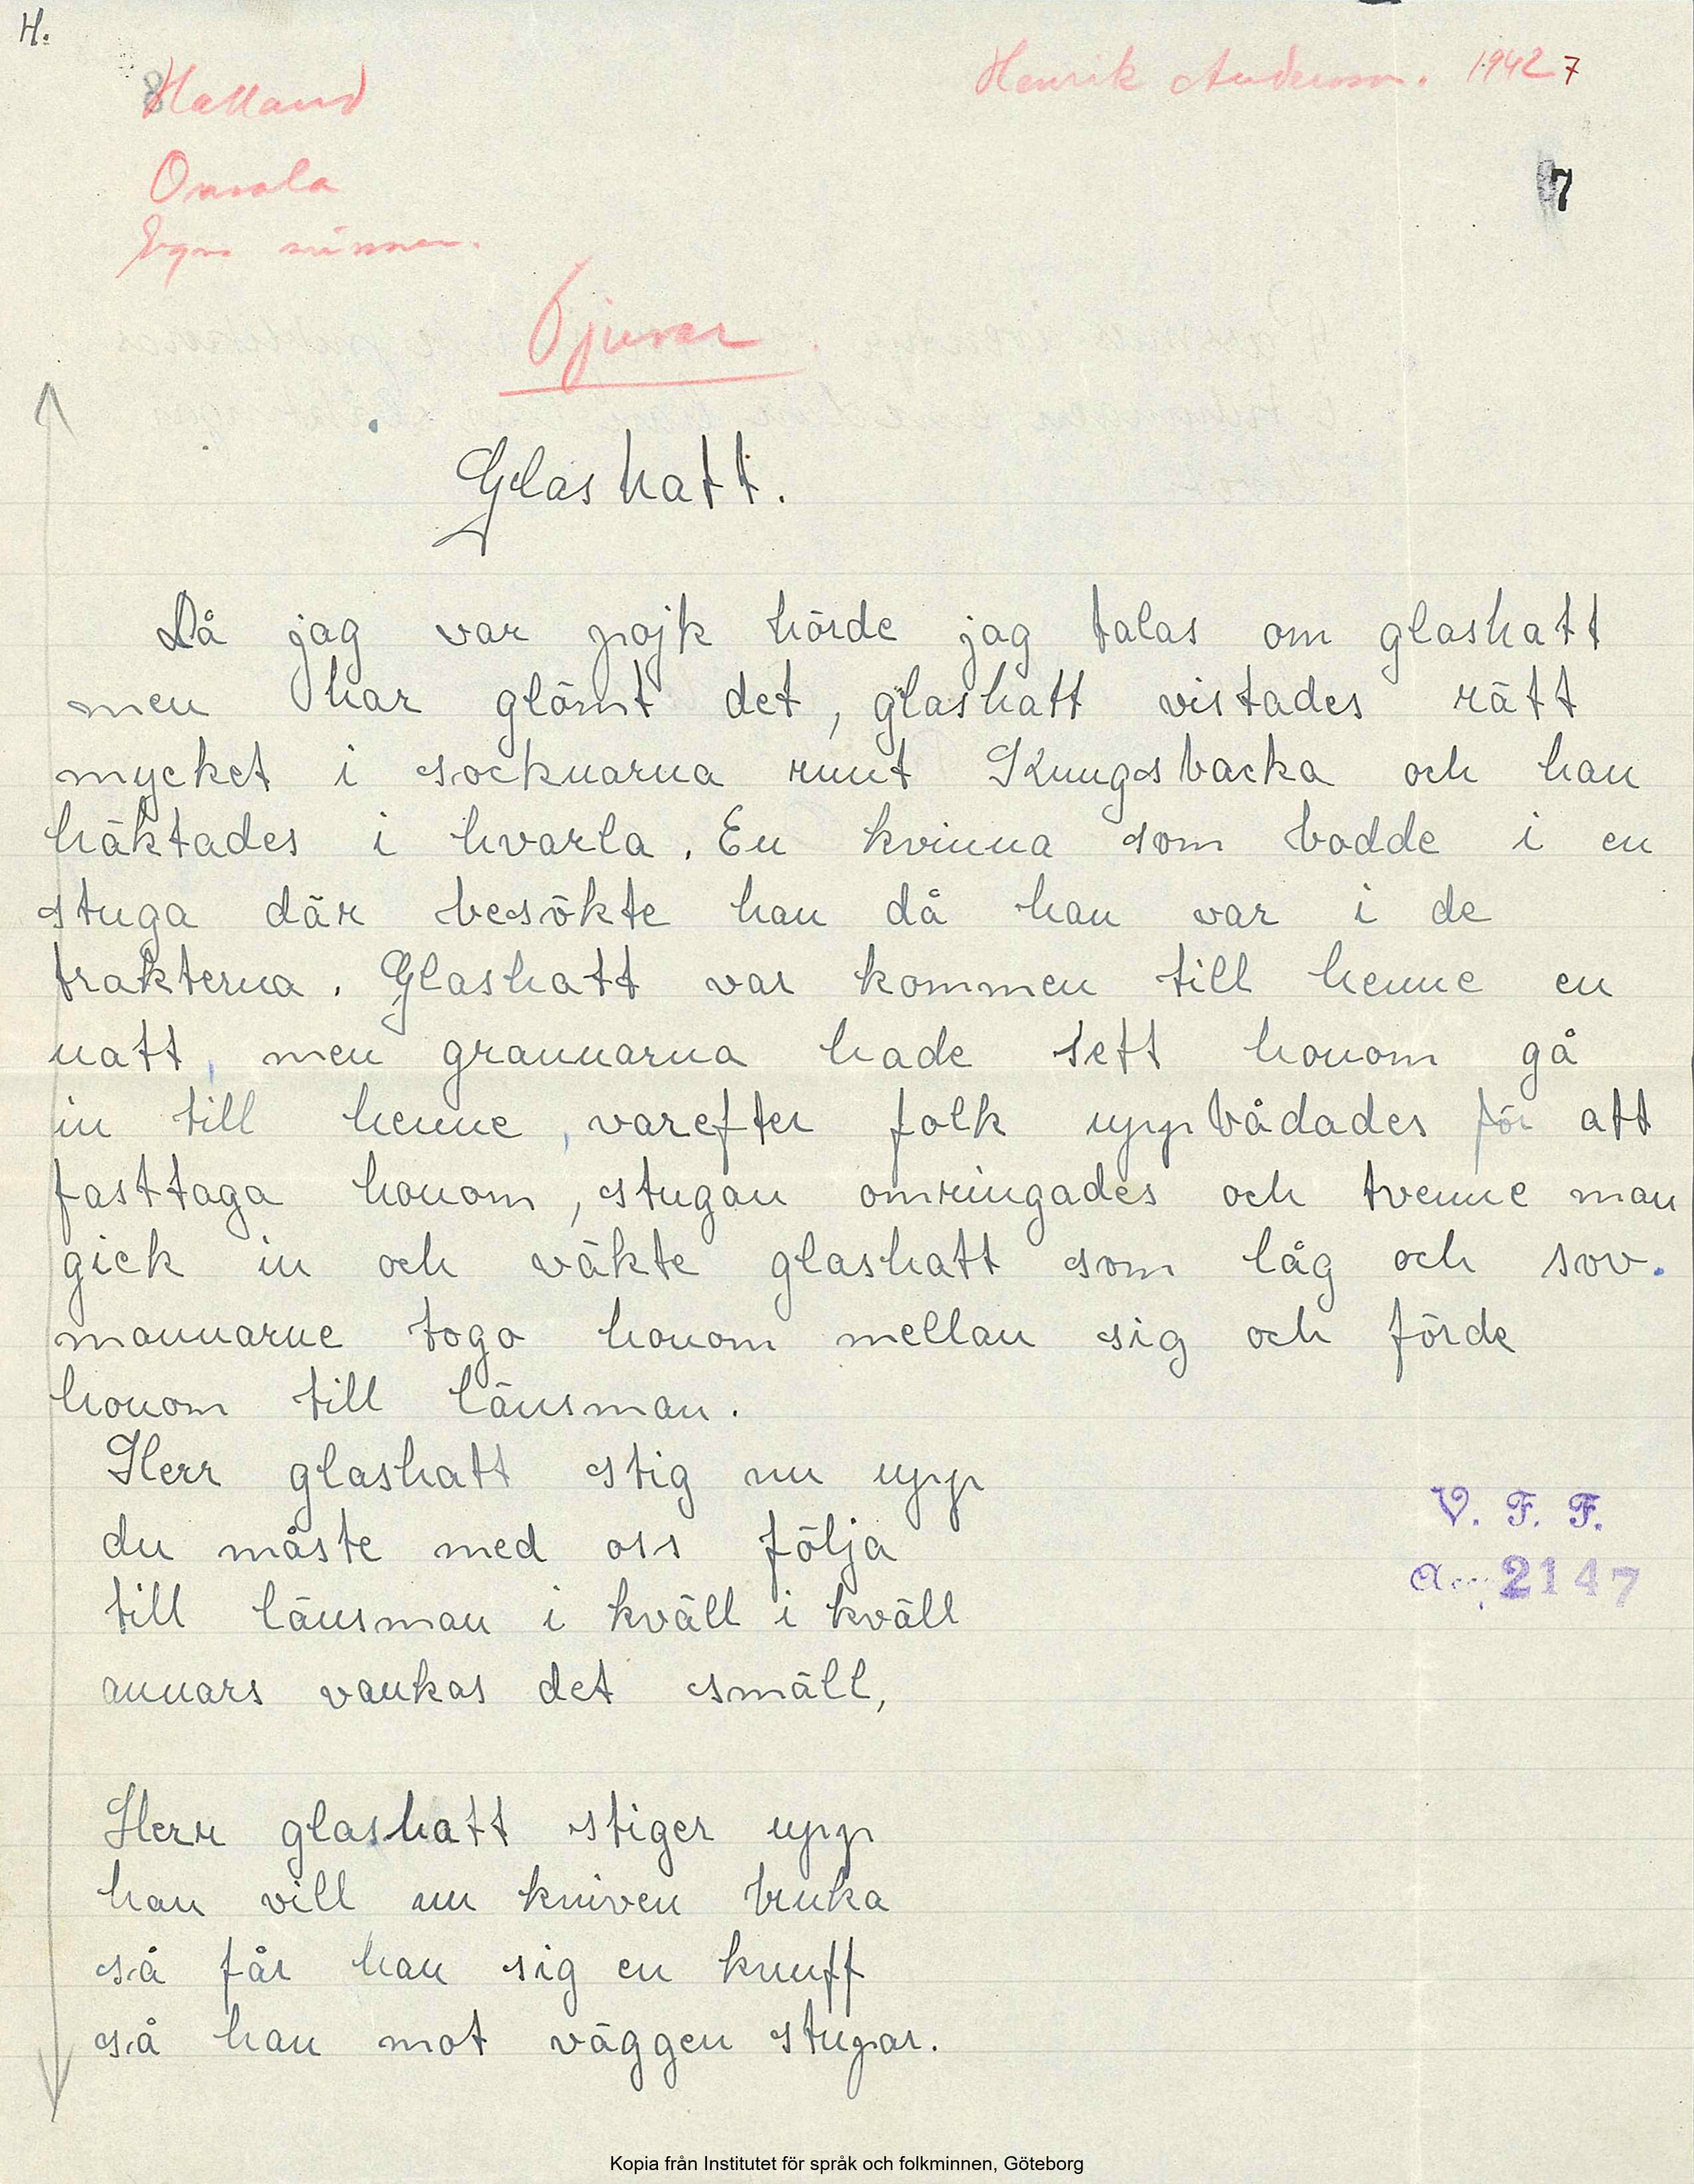 H.
Halland
Henrik Andersson. 1942 7
7
Onsala
Egna minnen.
Tjuvar.
Glashatt.
Då jag var pojk hörde jag talas om glashatt
men har glömt det, glashatt vistades rätt
mycket i socknarna runt Kungsbacka och han
häktades i hvarla. En kvinna som bodde i en
stuga där besökte han då han var i de
trakterna. Glashatt var kommen till henne en
natt, men grannarna hade sett honom gå
in till henne, varefter folk uppbådades för att
fasttaga honom, stugan omringades och tvenne man
gick in och väkte glashatt som låg och sov.
mannarne togo honom mellan sig och förde
honom till länsman.
Herr glashatt stig nu upp
du måste med oss följa
till länsman i kväll i kväll
annars vankas det smäll,
V. F. F.
Acc. 2147
Herr glashatt stiger upp
han vill nu kniven bruka
så får han sig en knuff
så han mot väggen stupar.
Kopia från Institutet för språk och folkminnen, Göteborg